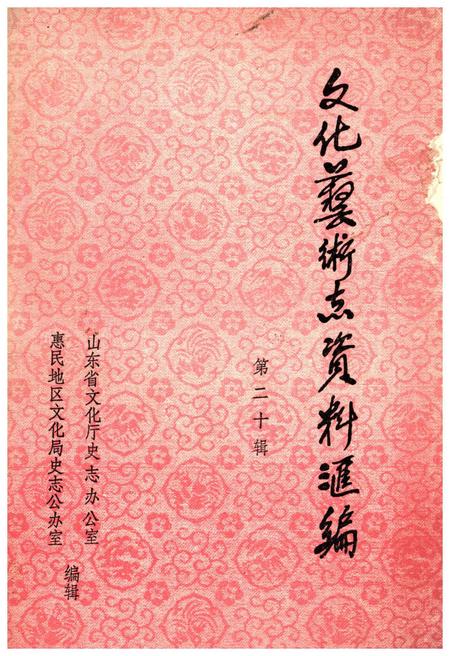 文化藝術志資料滙編
第二十辑
山东省文化厅史志办公室
惠民地区文化局史志公办室
编辑